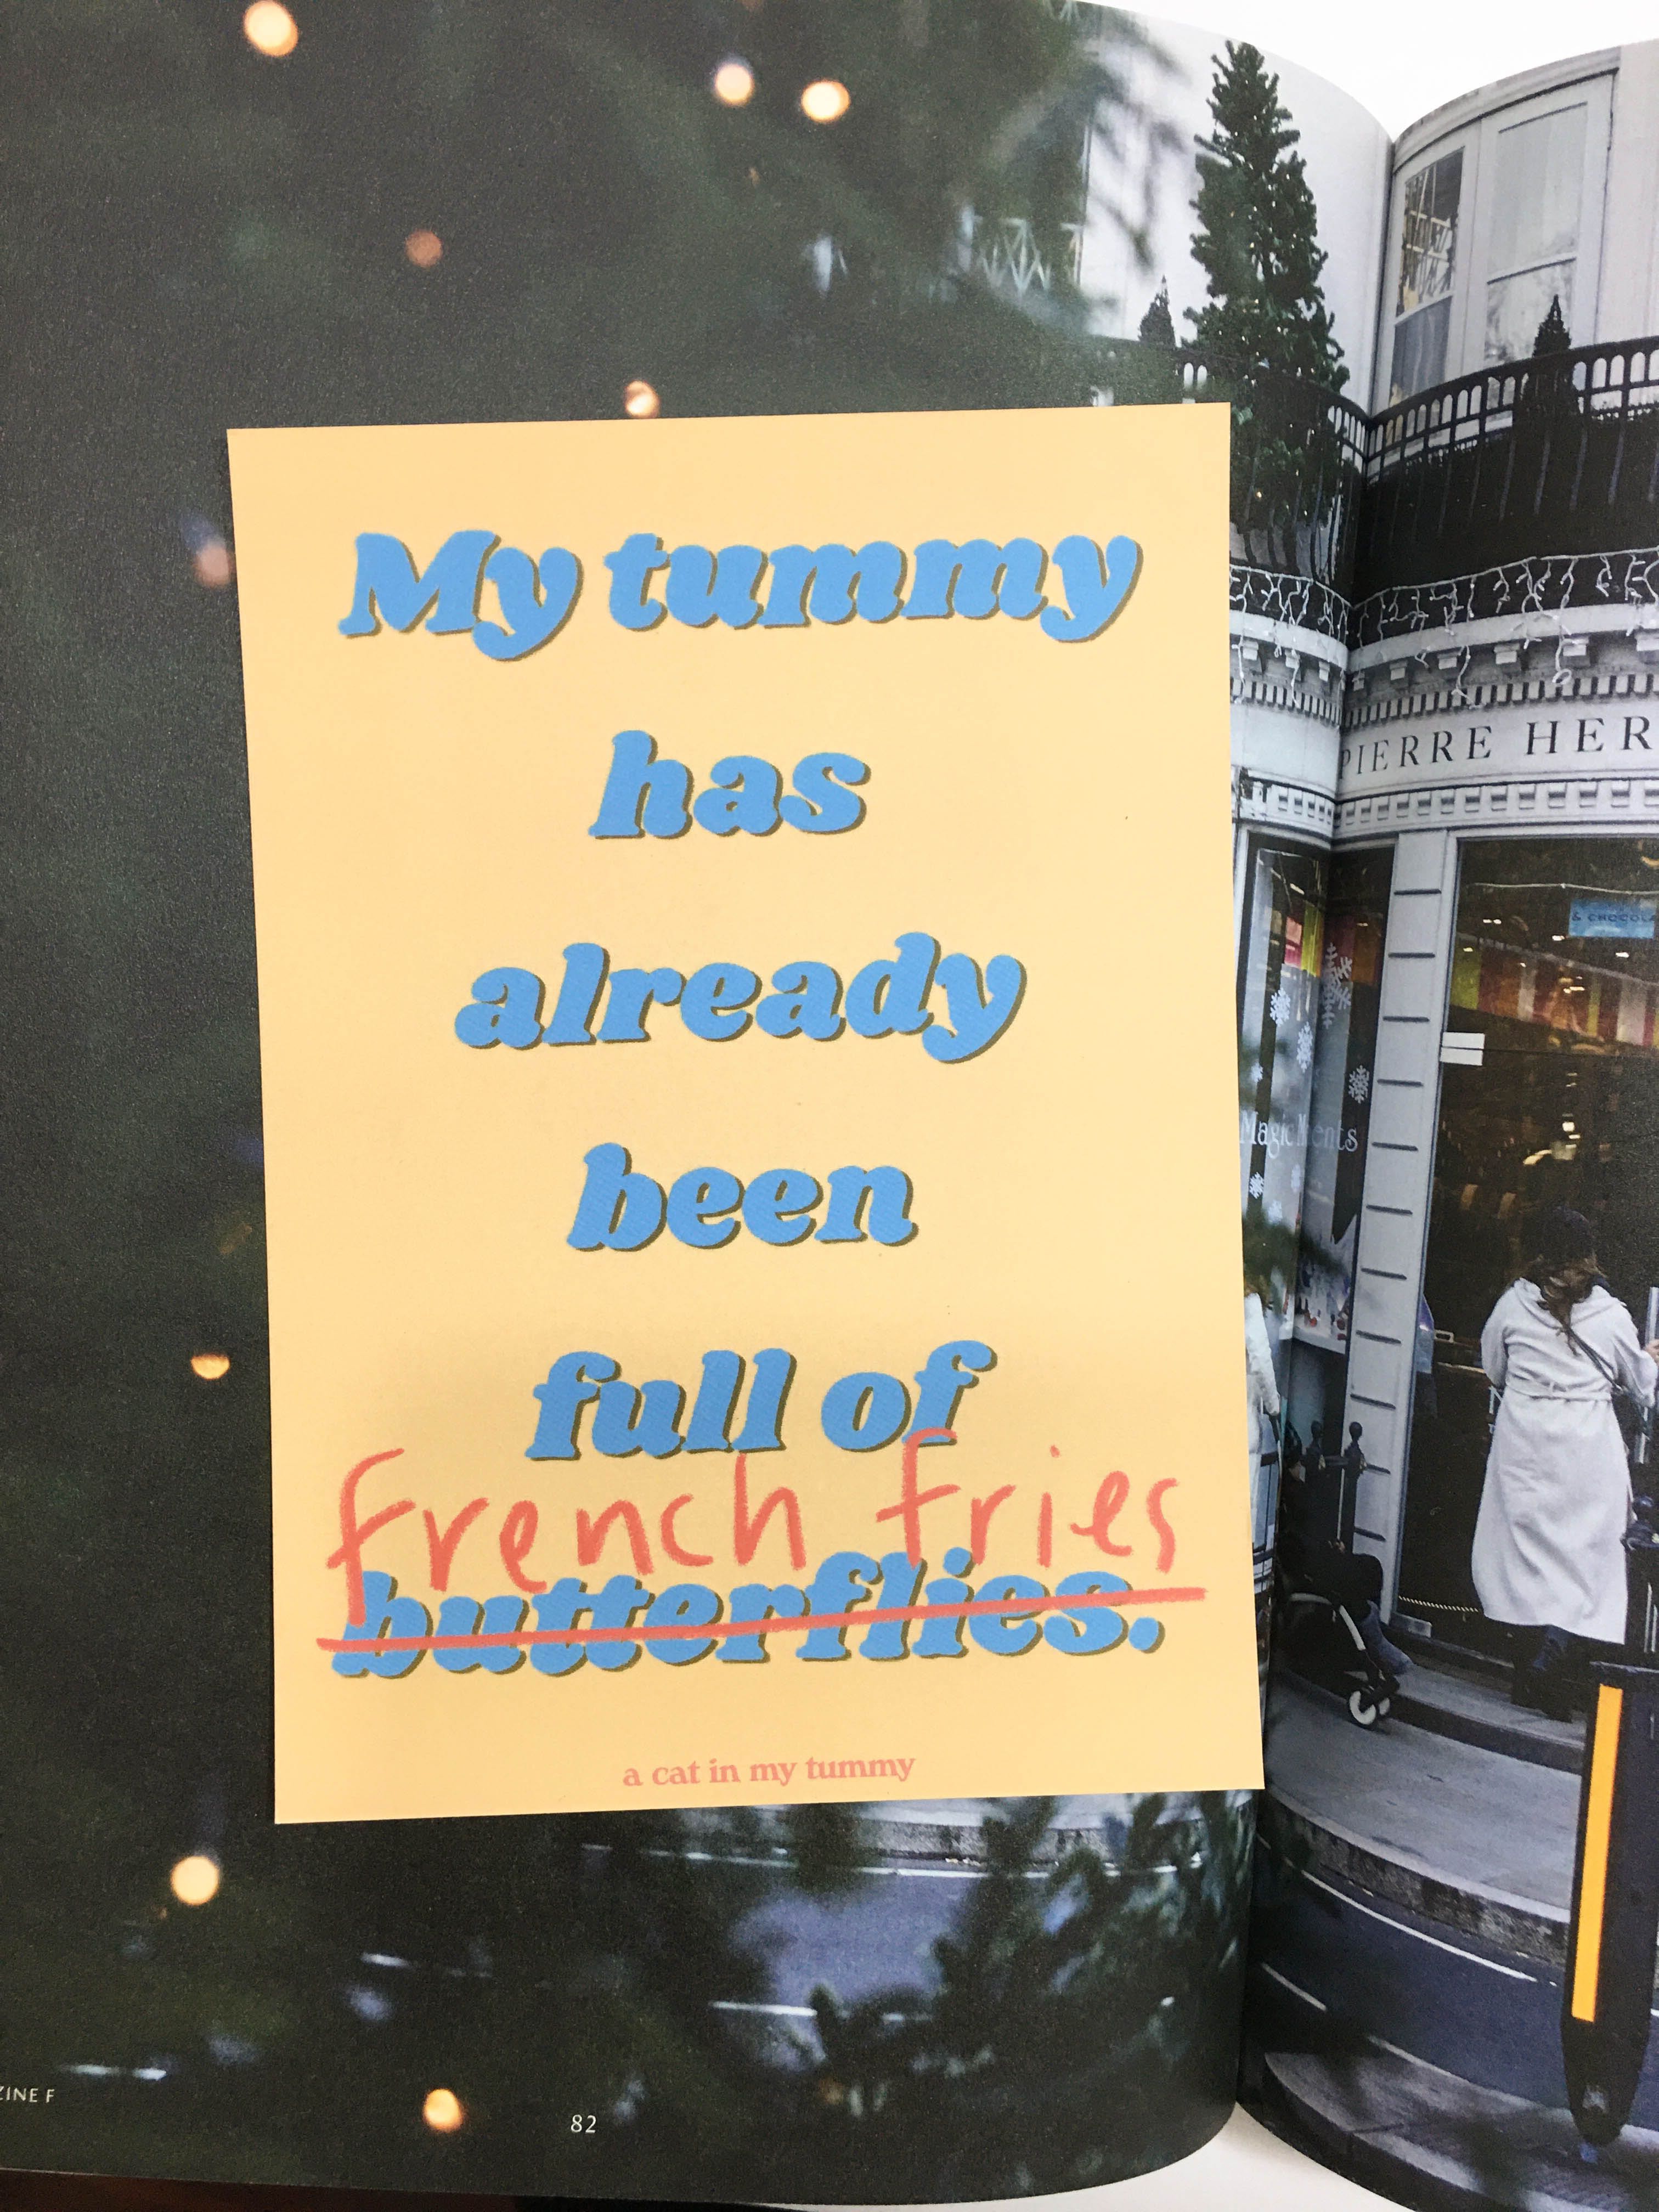 My tummy
has
already
been
full of
French fries
butterflies.
a cat in my tummy
PIERRE HER
& CHOCOLA
ZINE F
82